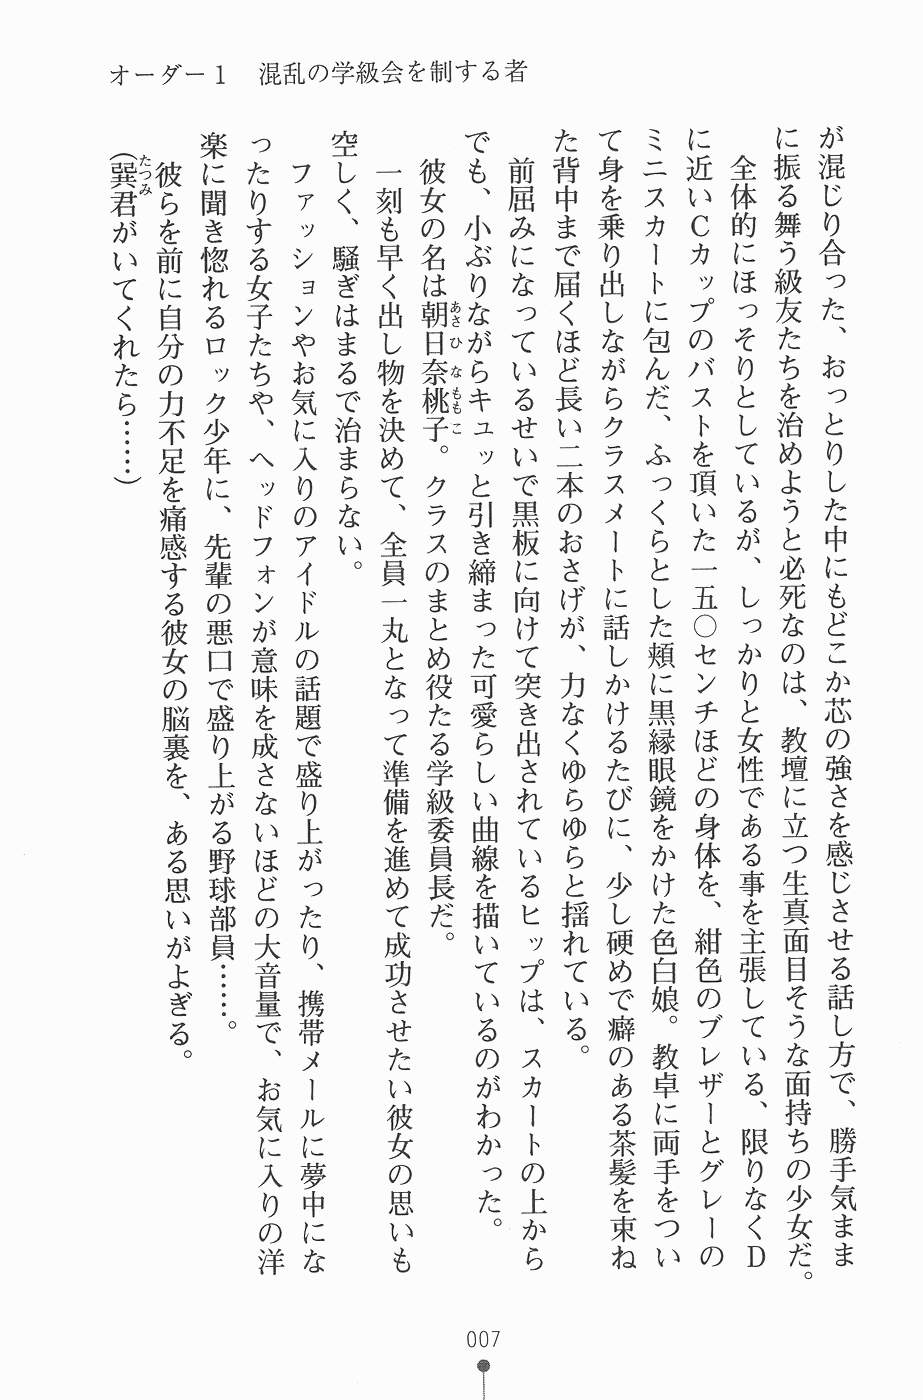 オーダー１　混乱の学級会を制する者
が混じり合った、おっとりした中にもどこか芯の強さを感じさせる話し方で、勝手気まま
に振る舞う級友たちを治めようと必死なのは、教壇に立つ生真面目そうな面持ちの少女だ。
全体的にほっそりとしているが、しっかりと女性である事を主張している、限りなくＤ
に近いＣカップのバストを頂いた一五〇センチほどの身体を、紺色のブレザーとグレーの
ミニスカートに包んだ、ふっくらとした頬に黒縁眼鏡をかけた色白娘。教卓に両手をつい
て身を乗り出しながらクラスメートに話しかけるたびに、少し硬めで癖のある茶髪を束ね
た背中まで届くほど長い二本のおさげが、力なくゆらゆらと揺れている。
前屈みになっているせいで黒板に向けて突き出されているヒップは、スカートの上から
でも、小ぶりながらキュッと引き締まった可愛らしい曲線を描いているのがわかった。
彼女の名は朝日奈桃子。クラスのまとめ役たる学級委員長だ。
あさひなももこ
一刻も早く出し物を決めて、全員一丸となって準備を進めて成功させたい彼女の思いも
空しく、騒ぎはまるで治まらない。
ファッションやお気に入りのアイドルの話題で盛り上がったり、携帯メールに夢中にな
ったりする女子たちや、ヘッドフォンが意味を成さないほどの大音量で、お気に入りの洋
楽に聞き惚れるロック少年に、先輩の悪口で盛り上がる野球部員……。
彼らを前に自分の力不足を痛感する彼女の脳裏を、ある思いがよぎる。
（巽君がいてくれたら……）
たつみ
007